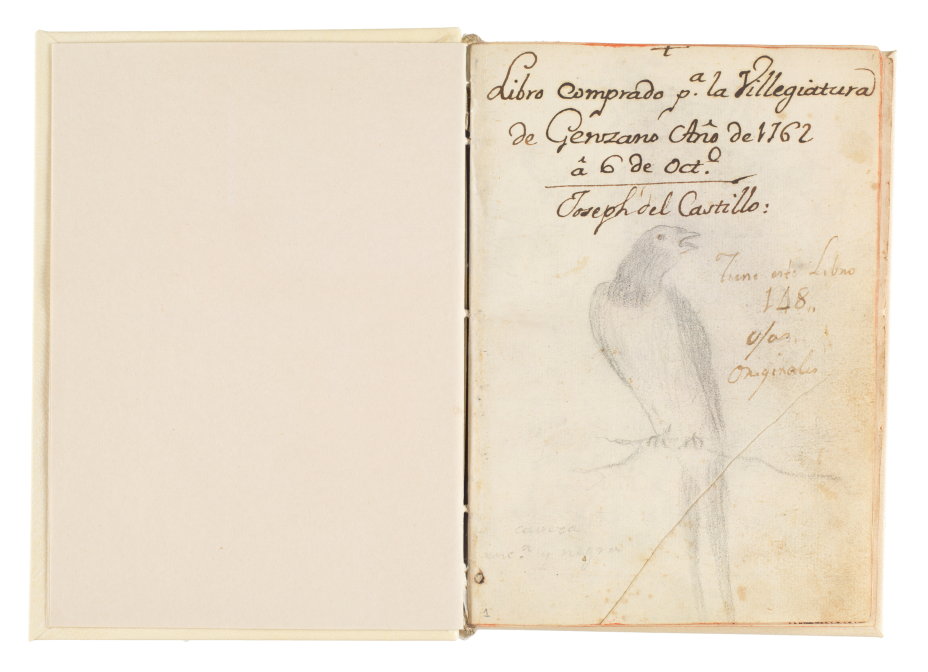 +
Libro comprado p.ª la Villegiatura
de Genzano Año de 1762
â 6 de Oct.º
Joseph del Castillo:
Tiene este Libro
148,,
ojas
Originales
caveza
y negra
1